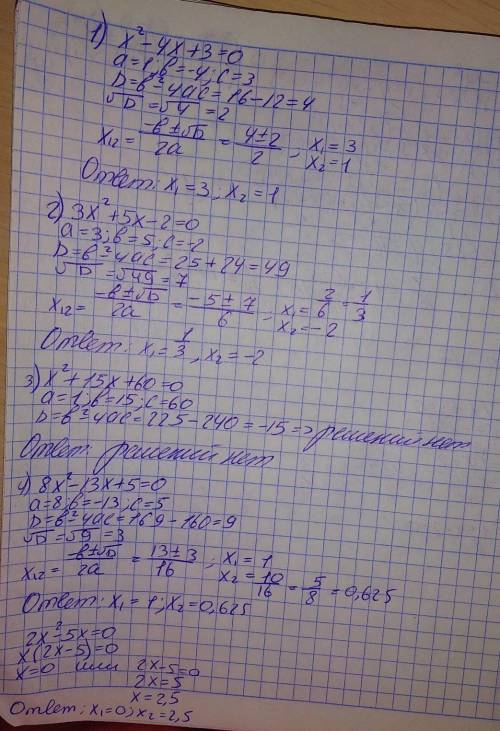 1) x² - 4x + 3 = 0
a = 1; в = -4; c = 3
D = в² - 4ac = 16 - 12 = 4
√D = √4 = 2
x₁₂ = (-в ± √D)/2a = (4 ± 2)/2, x₁ = 3
x₂ = 1
Ответ: x₁ = 3; x₂ = 1
2) 3x² + 5x - 2 = 0
a = 3; в = 5; c = -2
D = в² - 4ac = 25 + 24 = 49
√D = √49 = 7
x₁₂ = (-в ± √D)/2a = (-5 ± 7)/6, x₁ = 2/6 = 1/3
x₂ = -2
Ответ: x₁ = 1/3, x₂ = -2
3) x² + 15x + 60 = 0
a = 1; в = 15; c = 60
D = в² - 4ac = 225 - 240 = -15 => решений нет
Ответ: решений нет
4) 8x² - 13x + 5 = 0
a = 8; в = -13; c = 5
D = в² - 4ac = 169 - 160 = 9
√D = √9 = 3
x₁₂ = (-в ± √D)/2a = (13 ± 3)/16; x₁ = 1
x₂ = 10/16 = 5/8 = 0,625
Ответ: x₁ = 1; x₂ = 0,625
2x² - 5x = 0
x(2x - 5) = 0
x = 0 или 2x - 5 = 0
2x = 5
x = 2,5
Ответ: x₁ = 0; x₂ = 2,5